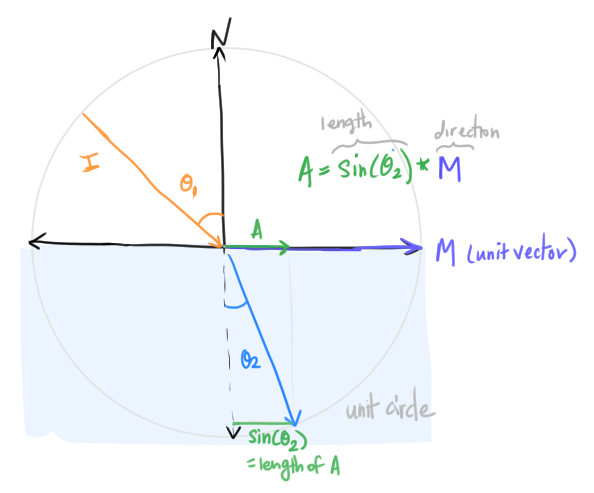 N
length
direction
A = sin(θ2) * M
I
θ1
A
M (unit vector)
θ2
unit circle
sin(θ2)
= length of A